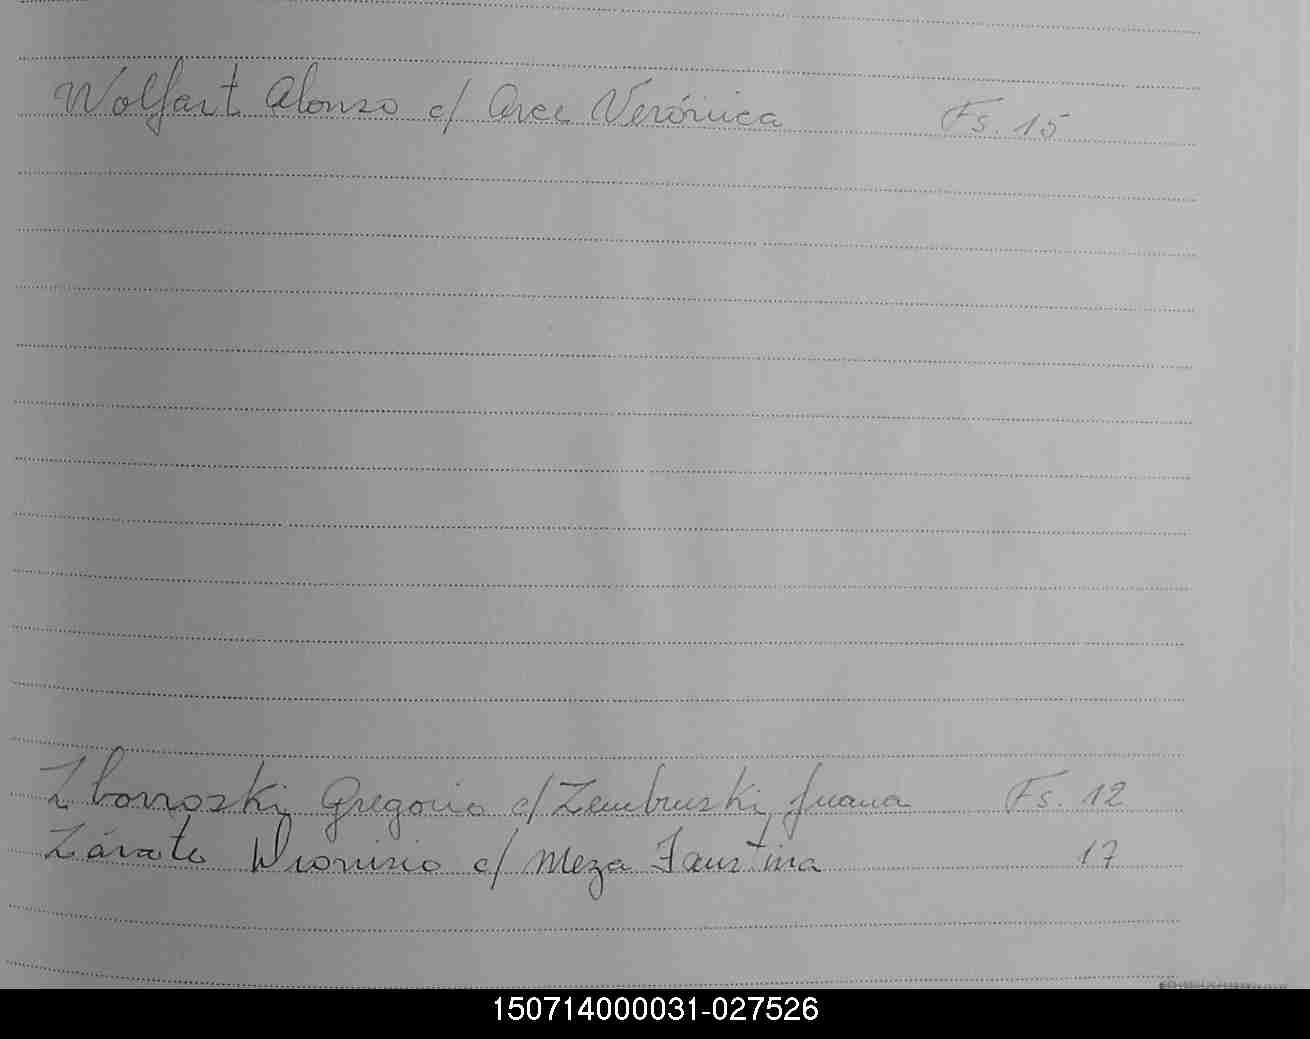 Wolfart Alonso c/ Arce Verónica Fs. 15
Zbonoski Gregorio c/ Zembruski Juana Fs. 12
Zárate Dionisio c/ Meza Faustina 17
150714000031-027526